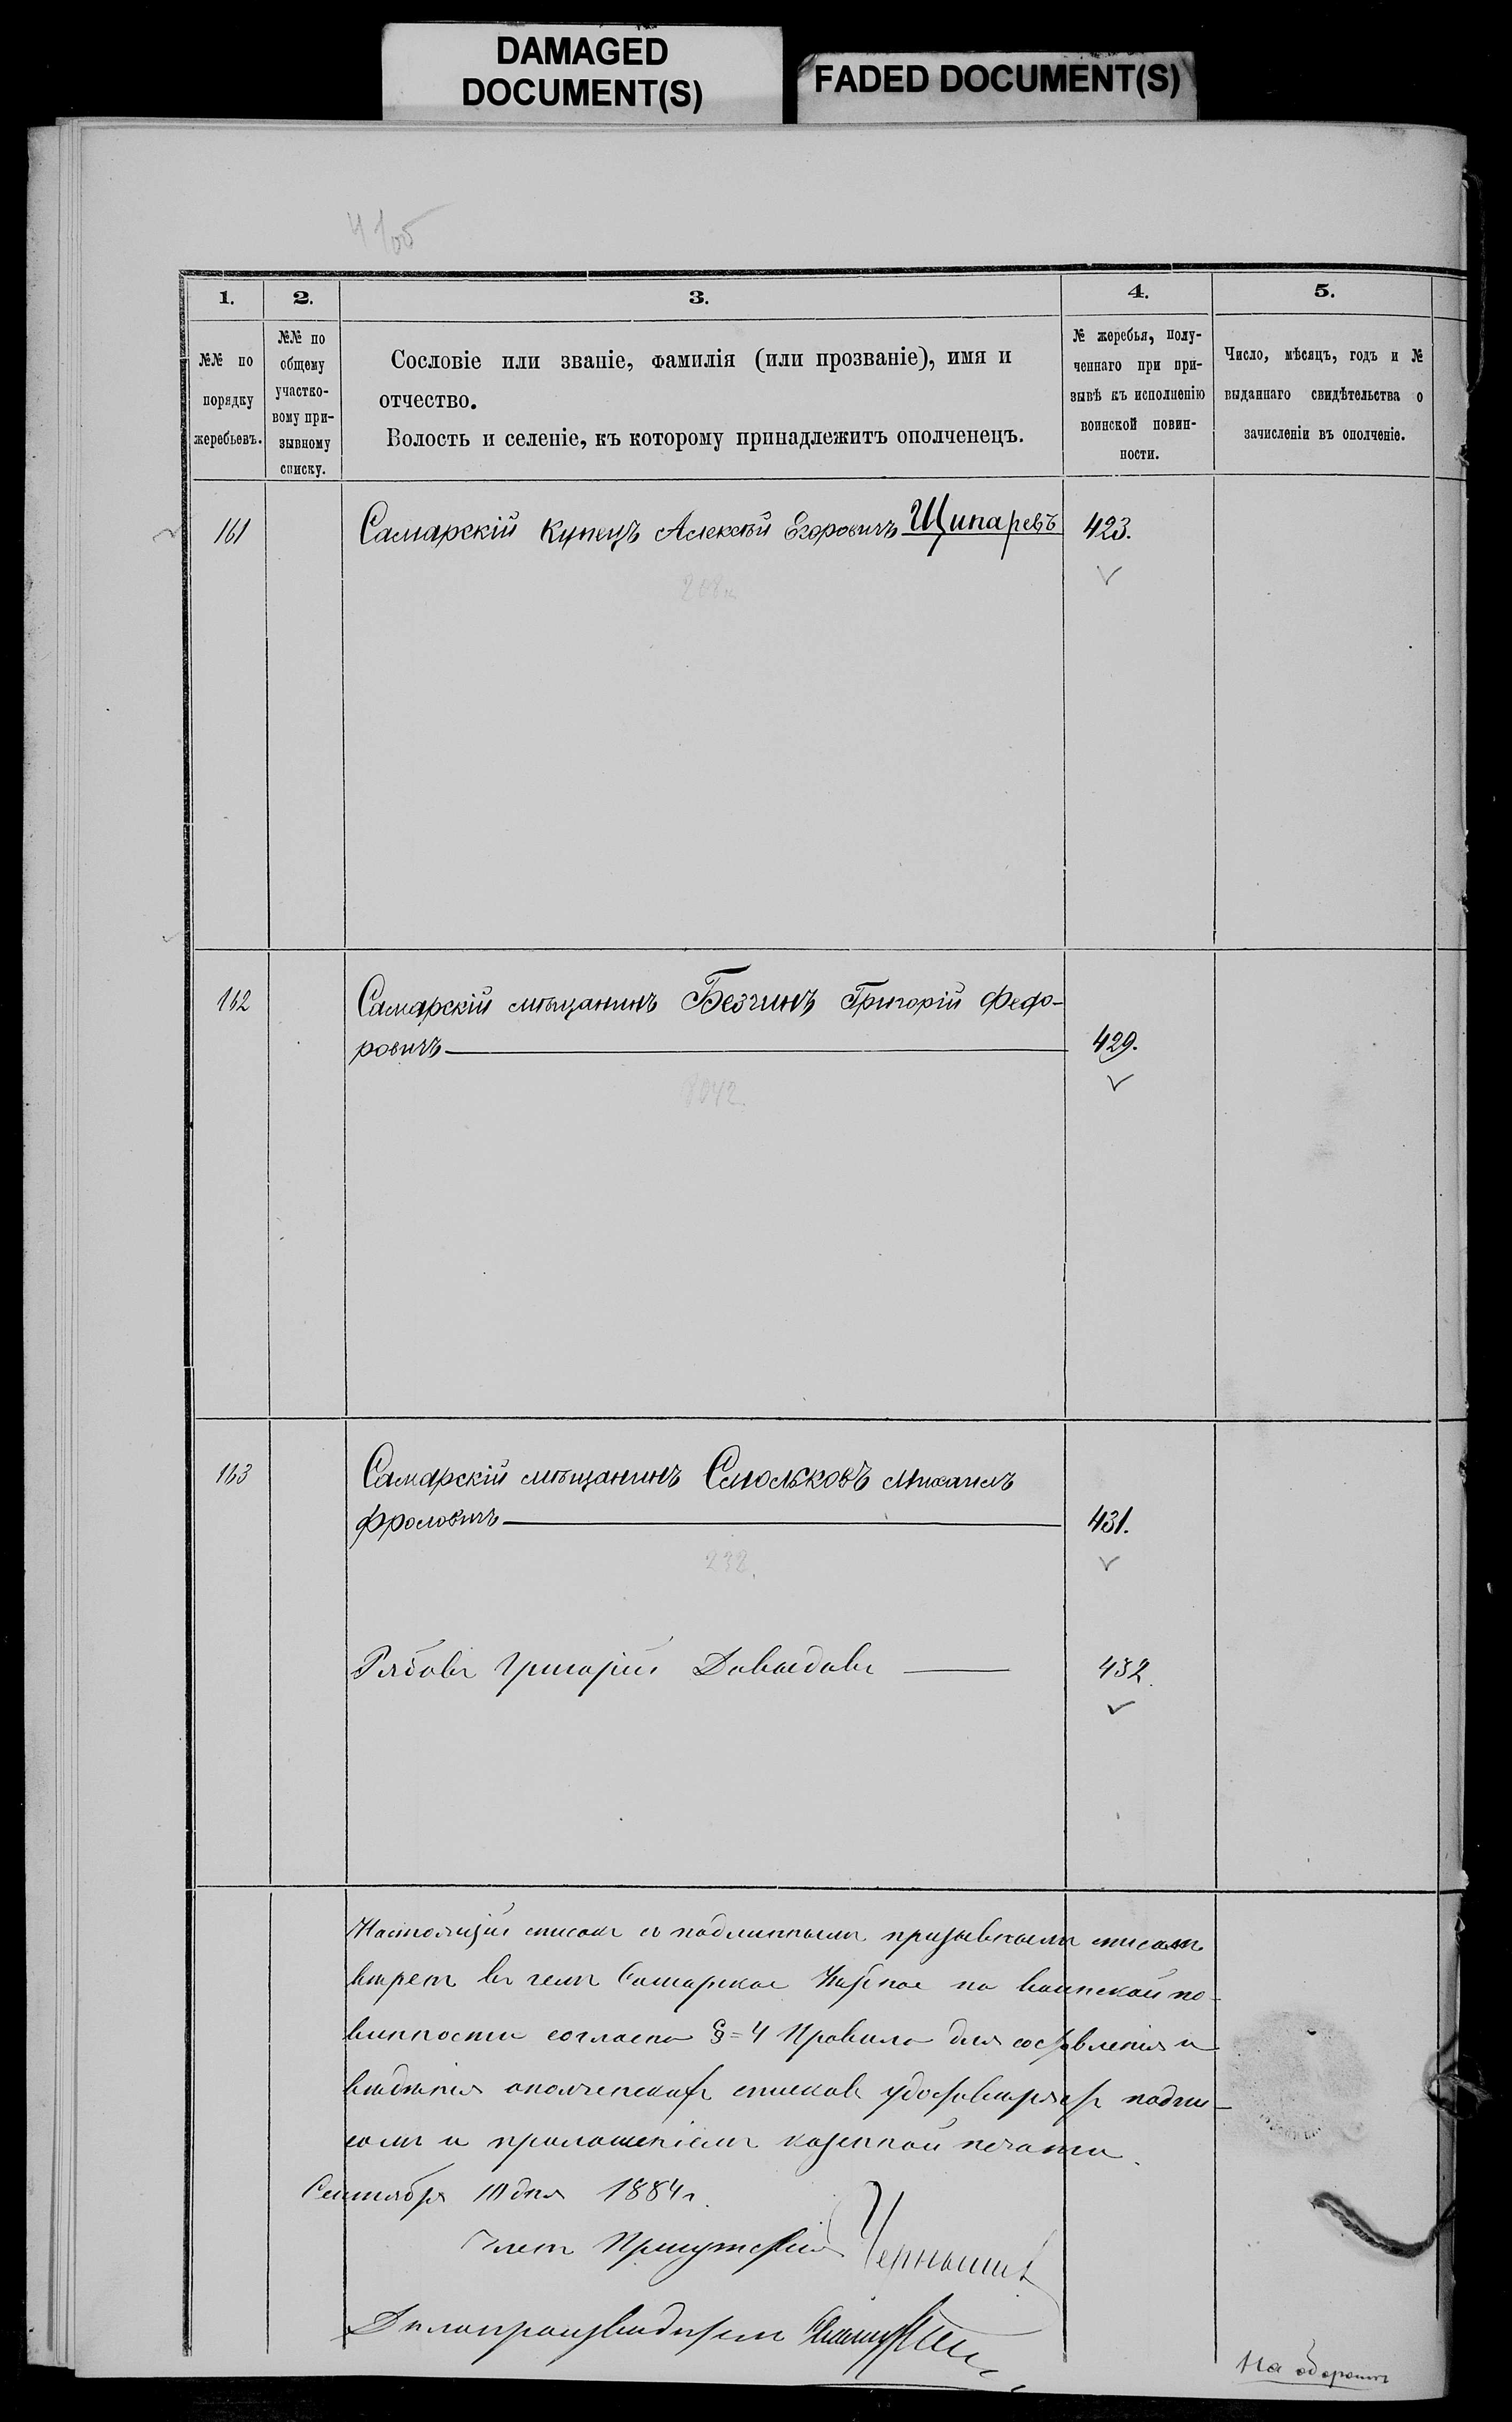 DAMAGED
DOCUMENT(S)
FADED DOCUMENT(S)
1.
2.
3.
4.
5.
№№ по
порядку
жеребьевъ.
№№ по
общему
участко-
вому при-
зывному
списку.
Сословіе или званіе, фамилія (или прозваніе), имя и
отчество.
Волость и селеніе, къ которому принадлежитъ ополченецъ.
№ жеребья, полу-
ченнаго при при-
зывѣ къ исполненію
воинской повин-
ности.
Число, мѣсяцъ, годъ и №
выданнаго свидѣтельства о
зачисленіи въ ополченіе.
161 Самарскій купецъ Алексѣй Егоровичъ Щипаревъ 423.
162 Самарскій мѣщанинъ Безчинъ Григорій Федо-
ровичъ 429.
8042.
163 Самарскій мѣщанинъ Смольковъ Михаилъ
Фроловичъ 431.
232.
Рябовъ Григорій Давыдовъ 432.
Настоящій списокъ съ подлиннымъ призывнымъ спискомъ
вѣренъ въ чемъ Самарское по воинской по-
винности согласно § 4 Правилъ для составленія и
веденія ополченскихъ списковъ удостовѣряетъ подпи-
сомъ и приложеніемъ казенной печати.
Сентября дня 1884 г.
Членъ Присутствія
Дѣлопроизводитель
На оборотѣ